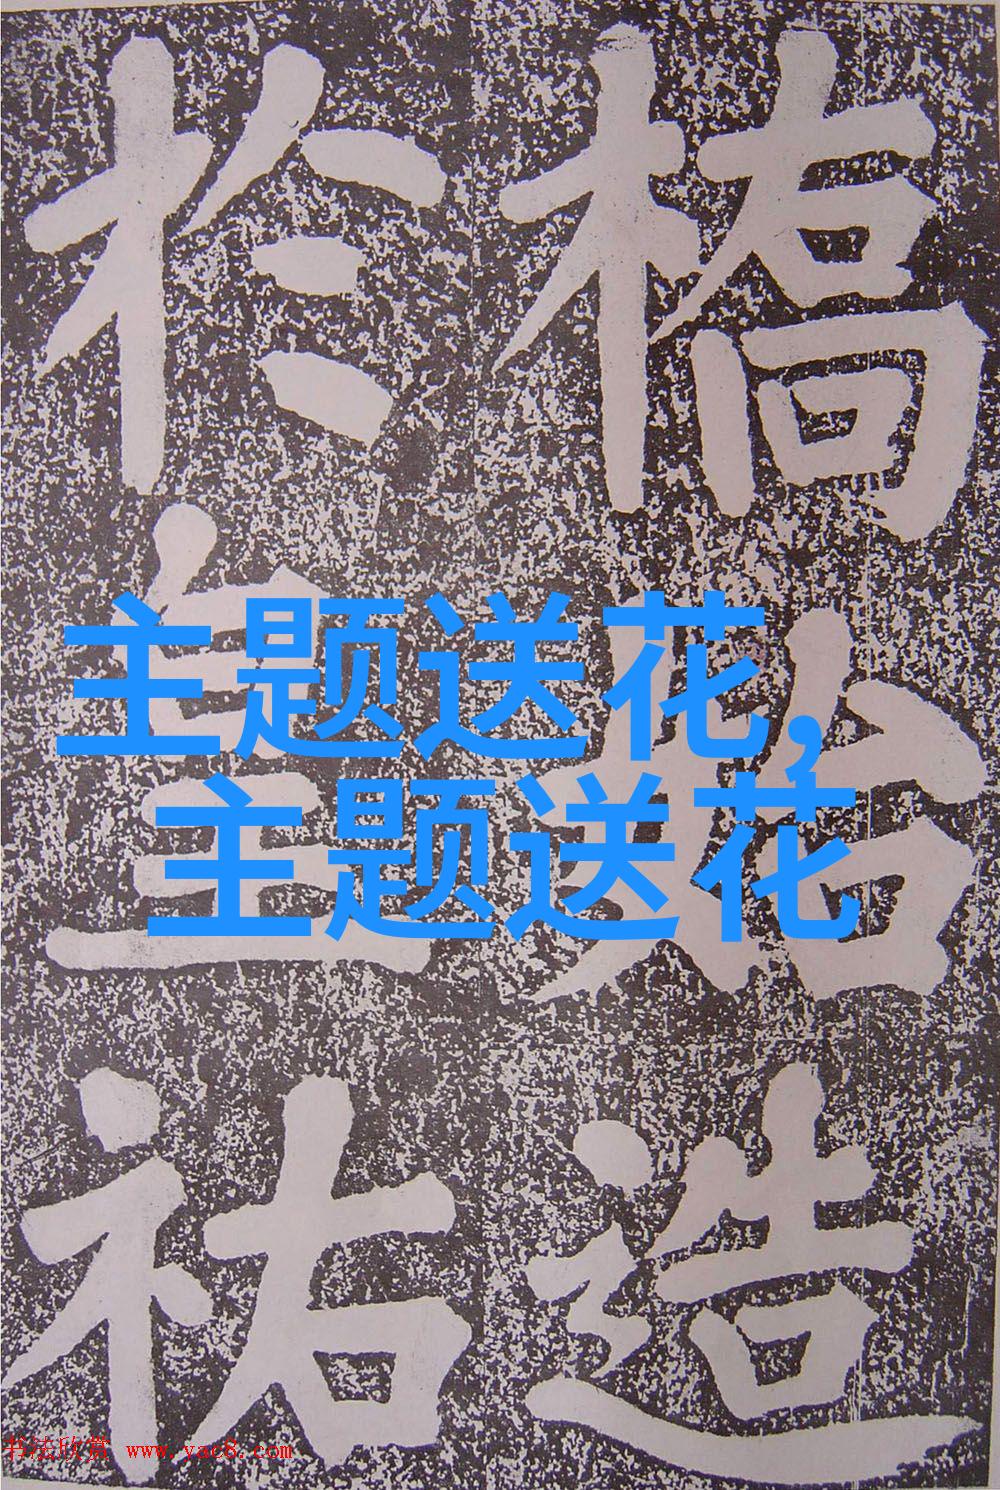 橋始造
扵皇祐
主题送花,
主题送花
书法欣赏 www.yac8.com